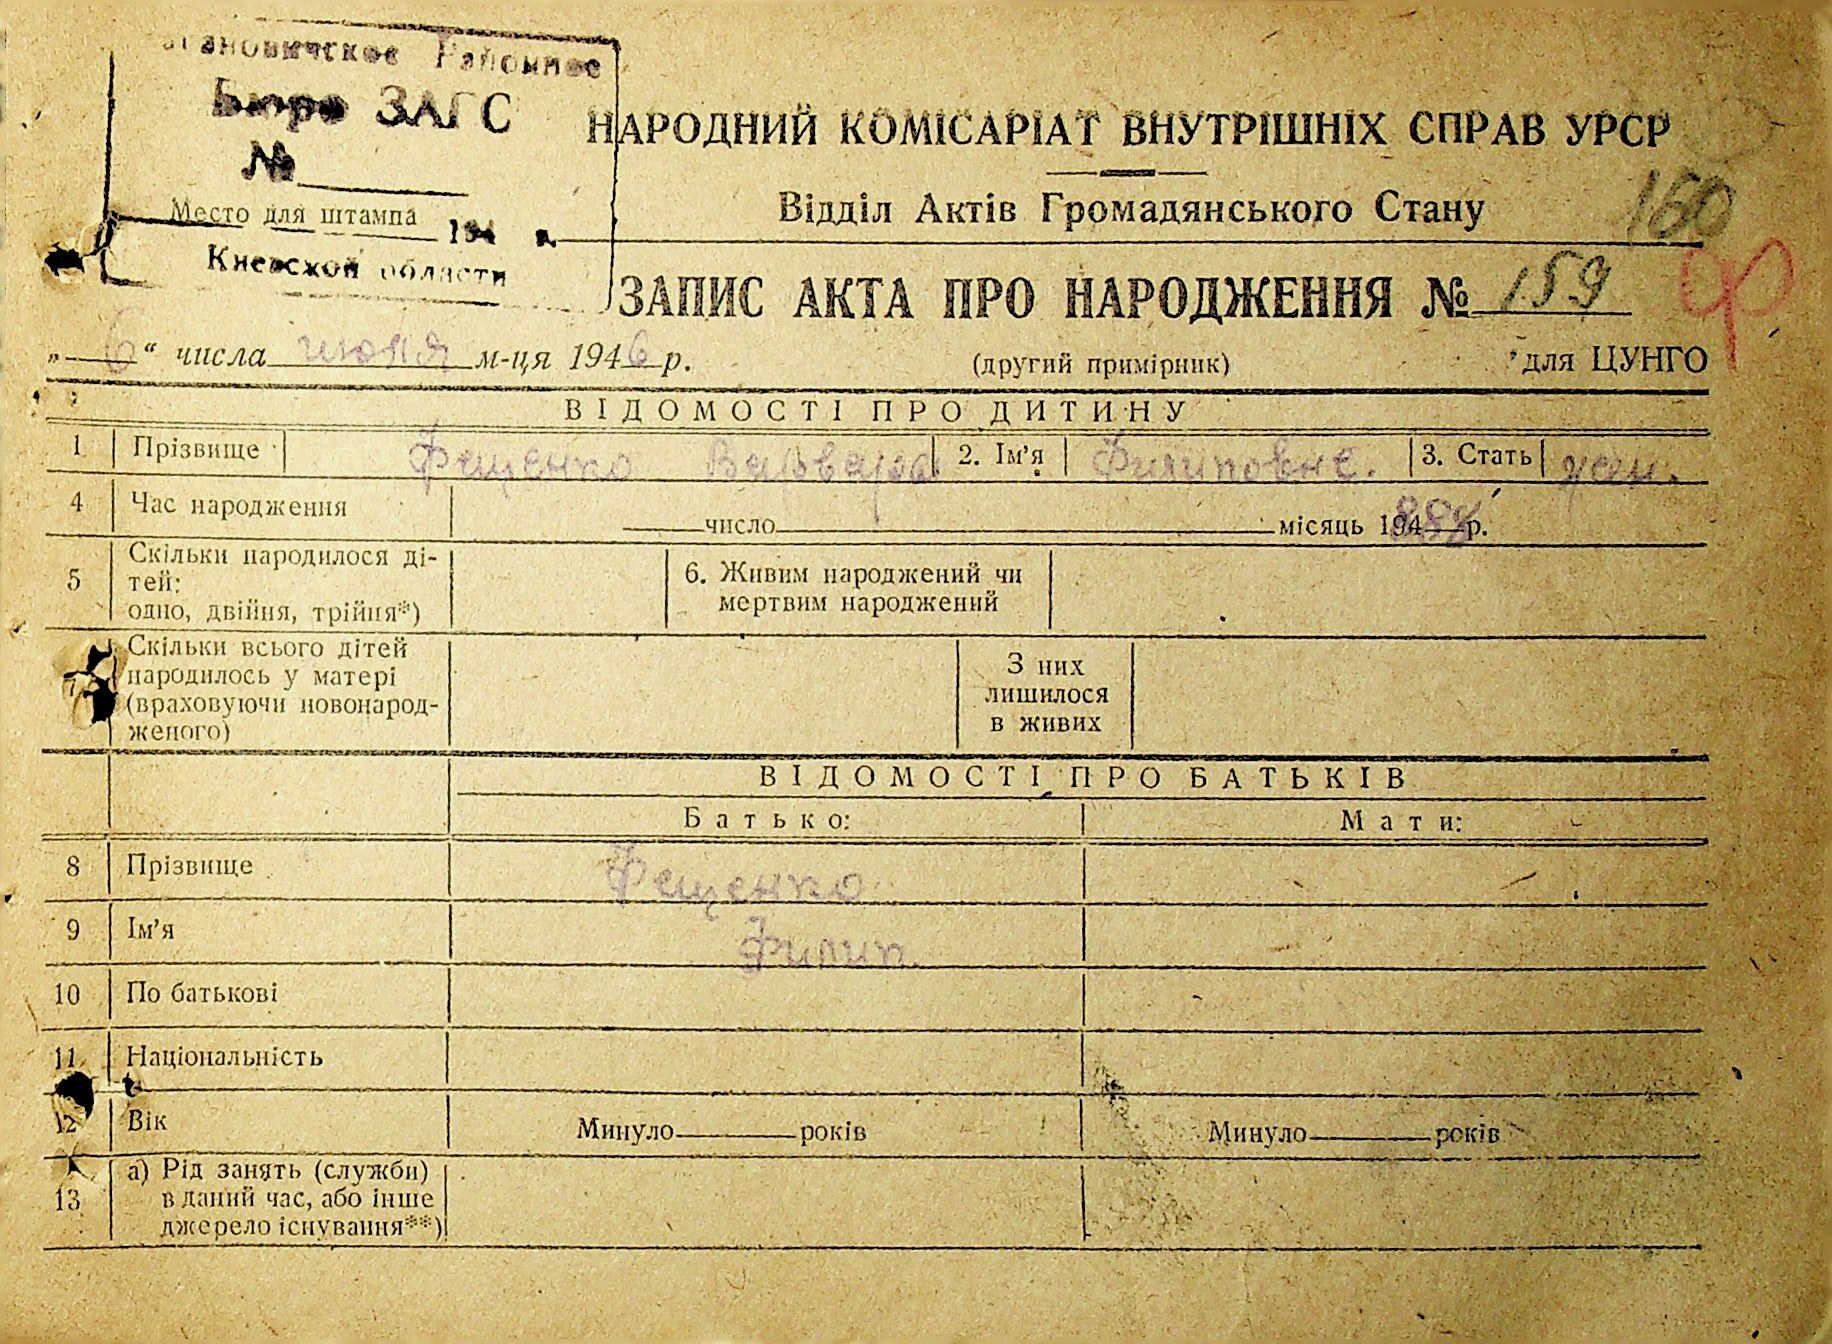 Районное
Бюро ЗАГС
№
Место для штампа 194 г.
Киевской области
НАРОДНИЙ КОМІСАРІАТ ВНУТРІШНІХ СПРАВ УРСР
Відділ Актів Громадянського Стану
160
ЗАПИС АКТА ПРО НАРОДЖЕННЯ № 159
„ 6 “ числа июля м-ця 1946 р. (другий примірник) для ЦУНГО
ВІДОМОСТІ ПРО ДИТИНУ
1 Прізвище Фещенко Варвара 2. Ім’я Филиповна. 3. Стать жен.
4 Час народження число місяць 194 р.
5 Скільки народилося ді-
тей:
одно, двійня, трійня*)
6. Живим народжений чи
мертвим народжений
7 Скільки всього дітей
народилось у матері
(враховуючи новонарод-
женого)
З них
лишилося
в живих
ВІДОМОСТІ ПРО БАТЬКІВ
Батько: Мати:
8 Прізвище Фещенко
9 Ім’я Филип.
10 По батькові
11 Національність
12 Вік Минуло років Минуло років
13 а) Рід занять (служби)
в даний час, або інше
джерело існування**)